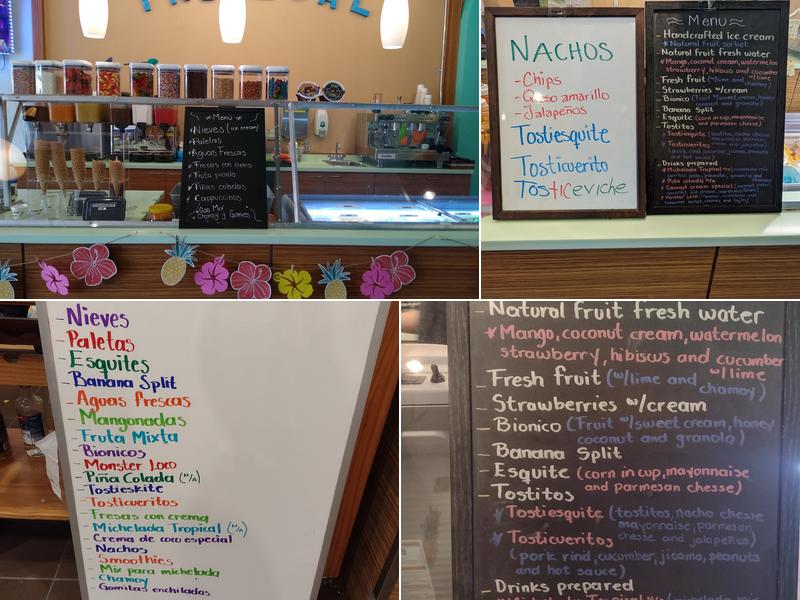 ≈ Menu ≈
- Nieves (ice cream)
- Paletas
- Aguas Frescas
- Fresas con crema
- Fruta picada
- Piñas coladas
- Cappuccinos
- Chamoy y Gomies
NACHOS
- Chips
- Queso amarillo
- Jalapeños
Tostiesquite
Tosticuerito
Tosticeviche
≈ Menu ≈
- Handcrafted ice cream
* Natural fruit sorbet
- Natural fruit fresh water
* Mango, coconut cream, watermelon
strawberry, hibiscus and cucumber
w/lime
- Fresh fruit (w/lime and chamoy)
- Strawberries w/cream
- Bionico (Fruit w/sweet cream, honey
coconut and granola)
- Banana Split
- Esquite (corn in cup, mayonnaise
and parmesan chesse)
- Tostitos
* Tostiesquite (tostitos, nacho chesse
mayonnaise, parmesan
chesse and jalapeños)
* Tosticueritos
(pork rind, cucumber, jicama, peanuts
and hot sauce)
- Drinks prepared
* Michelada Tropical
* Piña colada n/a
* Coconut cream special
* Monster Loco
- Nieves
- Paletas
- Esquites
- Banana Split
- Aguas frescas
- Mangonadas
- Fruta Mixta
- Bionicos
- Monster Loco
- Piña Colada (N/A)
- Tostieskite
- Tosticueritos
- Fresas con crema
- Michelada Tropical (N/A)
- Crema de coco especial
- Nachos
- Smoothies
- Mix para michelada
- Chamoy
- Gomitas enchiladas
- Natural fruit fresh water
* Mango, coconut cream, watermelon
strawberry, hibiscus and cucumber
w/lime
- Fresh fruit (w/lime and
chamoy)
- Strawberries w/cream
- Bionico (Fruit w/sweet cream, honey
coconut and granola)
- Banana Split
- Esquite (corn in cup, mayonnaise
and parmesan chesse)
- Tostitos
* Tostiesquite (tostitos, nacho chesse
mayonnaise, parmesan
chesse and jalapeños)
* Tosticueritos
(pork rind, cucumber, jicama, peanuts
and hot sauce)
- Drinks prepared